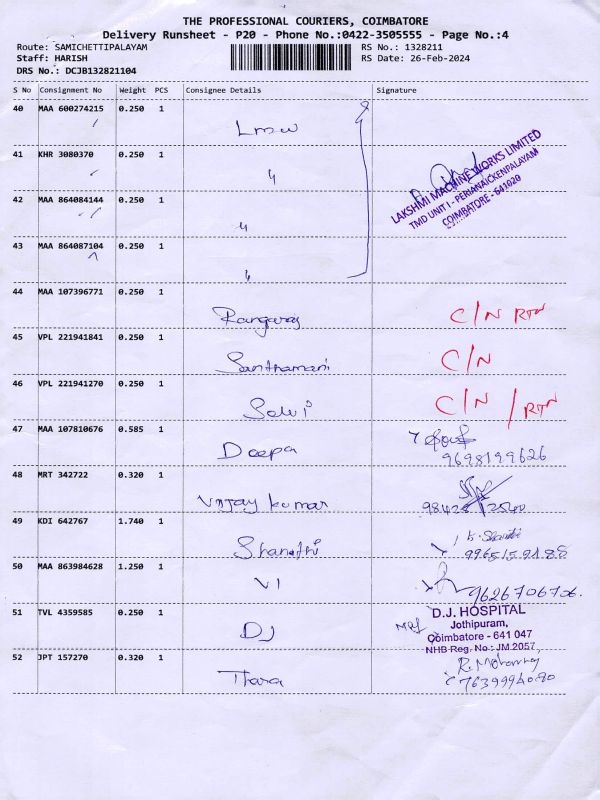 THE PROFESSIONAL COURIERS, COIMBATORE
Delivery Runsheet - P20 - Phone No.:0422-3505555 - Page No.:4
Route: SAMICHETTIPALAYAM RS No.: 1328211
Staff: HARISH RS Date: 26-Feb-2024
DRS No.: DCJB132821104
S No Consignment No Weight PCS Consignee Details Signature
40 MAA 600274215 0.250 1
Lmw
41 KHR 3080370 0.250 1
"
LAKSHMI MACHINE WORKS LIMITED
TMD UNIT I - PERIANAICKENPALAYAM
COIMBATORE - 641020
42 MAA 864084144 0.250 1
"
43 MAA 864087104 0.250 1
"
44 MAA 107396771 0.250 1
Rangaraj C/N RTN
45 VPL 221941841 0.250 1
Santhamani C/N
46 VPL 221941270 0.250 1
Selvi C/N / RTN
47 MAA 107810676 0.585 1
Deepa 9698199626
48 MRT 342722 0.320 1
Vijay kumar 98428 2540
49 KDI 642767 1.740 1
Shanthi 9965159188
50 MAA 863984628 1.250 1
VI 9626706706.
51 TVL 4359585 0.250 1
DJ
D.J. HOSPITAL
Jothipuram,
Coimbatore - 641 047
NHB Reg. No.: JM 2057
52 JPT 157270 0.320 1
Thara